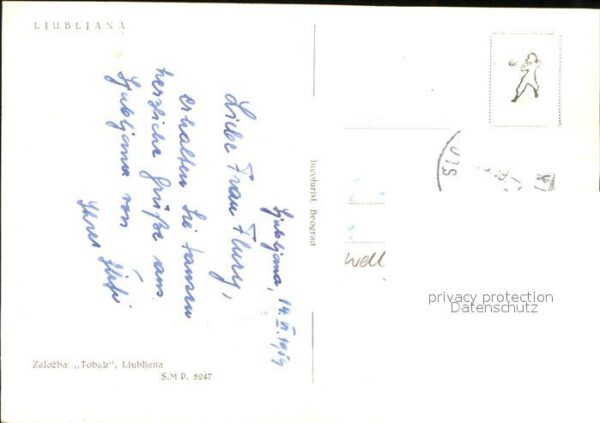 LJUBLJANA
Ljubljana, 14.VI.1959
Liebe Frau Flury,
erhalten Sie tausen
herzliche Grüße aus
Ljubljana von
Ihrer
Jugoturist, Beograd
Založba: „Tobak”, Ljubljana
S.M.P. 5947
privacy protection
Datenschutz